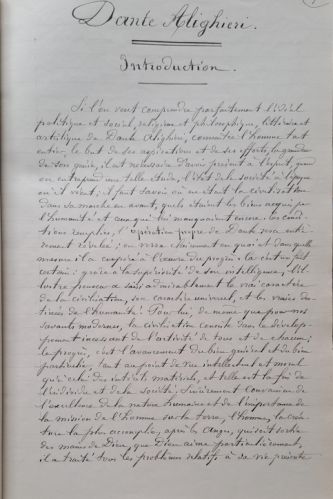 Dante Alighieri.
Introduction.
Si l'on veut comprendre parfaitement l'idéal
politique et social, religieux et philosophique, littéraire et
artistique de Dante Alighieri, connaître l'homme tout
entier, le but de ses aspirations et de ses efforts, la grandeur
de son génie, il est nécessaire d'avoir présent à l'esprit, quand
on entreprend une telle étude, l'état de la société à l'époque
où il vécut; il faut savoir où en était la civilisation
dans sa marche en avant, quels étaient les biens acquis par
l'humanité et ceux qui lui manquaient encore. Ces condi-
tions remplies, l' propre de Dante sera entiè-
rement révélée; on verra clairement en quoi et dans quelle
mesure il a coopéré à l'œuvre du progrès: le but un fait
certain: grâce à la supériorité de son intelligence, l'il-
lustre penseur a saisi admirablement le vrai caractère
de la civilisation, son caractère universel, et les vraies des-
tinées de l'humanité. Pour lui, de même que pour nos
savants modernes, la civilisation consiste dans le dévelop-
pement incessant de l'activité de tous et de chacun;
le progrès, c'est l'avancement du bien général et du bien
particulier tant au point de vue intellectuel et moral
qu'à celui des intérêts matériels, et telle est la fin de
l'individu et de la société. Sincèrement convaincu de
l'excellence de la nature humaine et de l'importance de
la mission de l'homme sur la terre, l'homme, la créa-
ture la plus accomplie, après les Anges, qui soit sortie
des mains de Dieu, que Dieu aime particulièrement,
il a traité tous les problèmes relatifs à sa vie présente